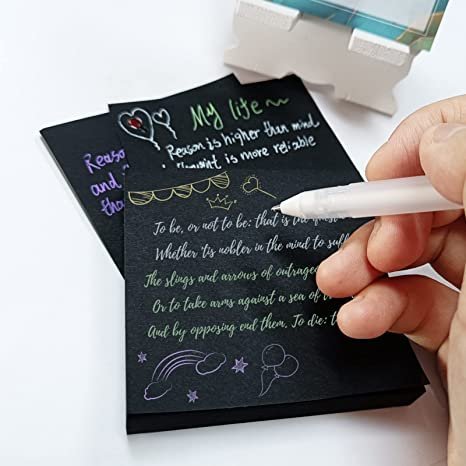 My life
Reason is higher than mind
is more reliable
Reason
and
tha
To be, or not to be: that is the
Whether 'tis nobler in the mind to suff
The slings and arrows of outrage
Or to take arms against a sea of
And by opposing end them. To die: t